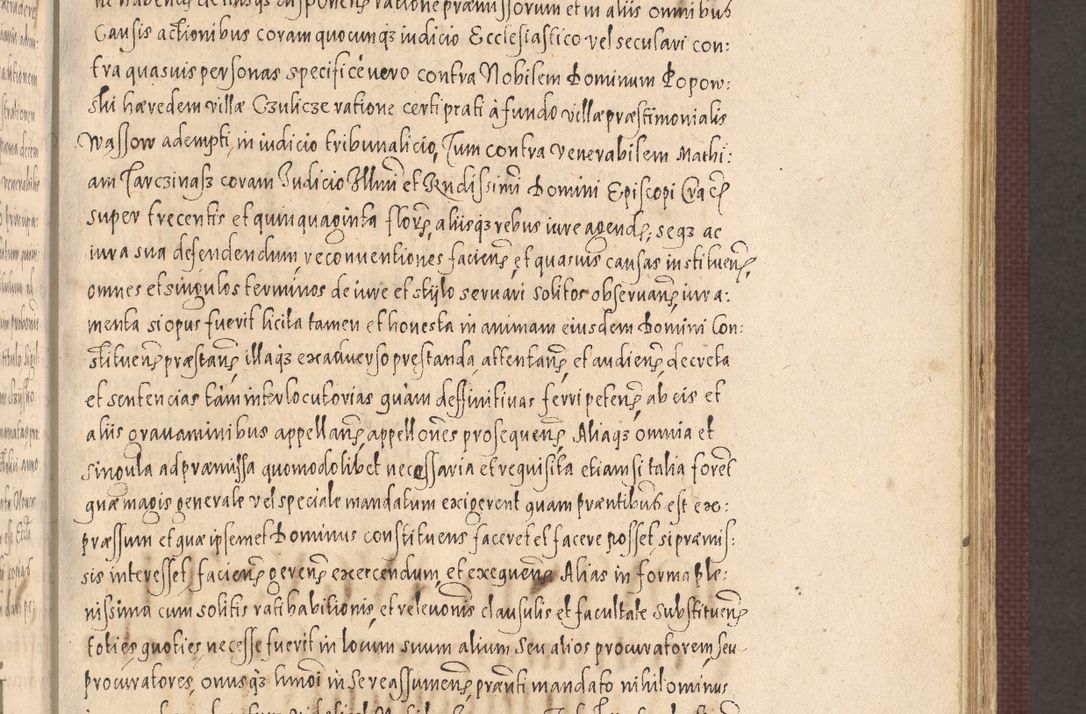 ne habens de iusq disponens ratione præmissorum et in aliis omnibus
Causis actionibus coram quocumqz iudicio Ecclesiastico vel seculari con:
tra quasuis personas specificè vero contra Nobilem Dominum Popow:
ski hæredem villæ Czulicze ratione certi prati à fundo villæ præstimonialis
Wassow adempti, in iudicio tribunalicio, Tum contra Venerabilem Mathi:
am Tarczinass coram Iudicio Illmi et Rndissimi Domini Episcopi Crac
super trecentis et quinquaginta floren, aliisqz rebus iure agend, seqz ac
iura sua defendendum, reconventiones faciend, et quasuis causas instituen,
omnes et singulos terminos de iure et stylo servari solitos observand, iura:
menta si opus fuerit licita tamen et honesta in animam eiusdem Domini Con:
stituen præstand, illaqz ex adverso prestanda attentand, et audiend decreta
et sentencias tàm interlocutorias quàm deffinitivas ferri peten, ab eis et
aliis gravaminibus appelland, appellones prosequen, Aliaqz omnia et
singula ad præmissa quomodolibet necessaria et requisita etiamsi talia forent
quæ magis generale vel speciale mandatum exigerent quam præntibus est ex:
præssum et quæ ipsemet Dominus constituens faceret et facere posset, si præmis:
sis interesset, faciend gerend exercendum, et exequend, Alias in forma ple:
nissima cum solitis ratihabitionis, et relevonis clausulis et facultate substituend
toties quoties necesse fuerit in locum suum alium seu alios procuratorem, seu
procuratores, onusqz hmoi in se reassumend, prænti mandato nihilominus